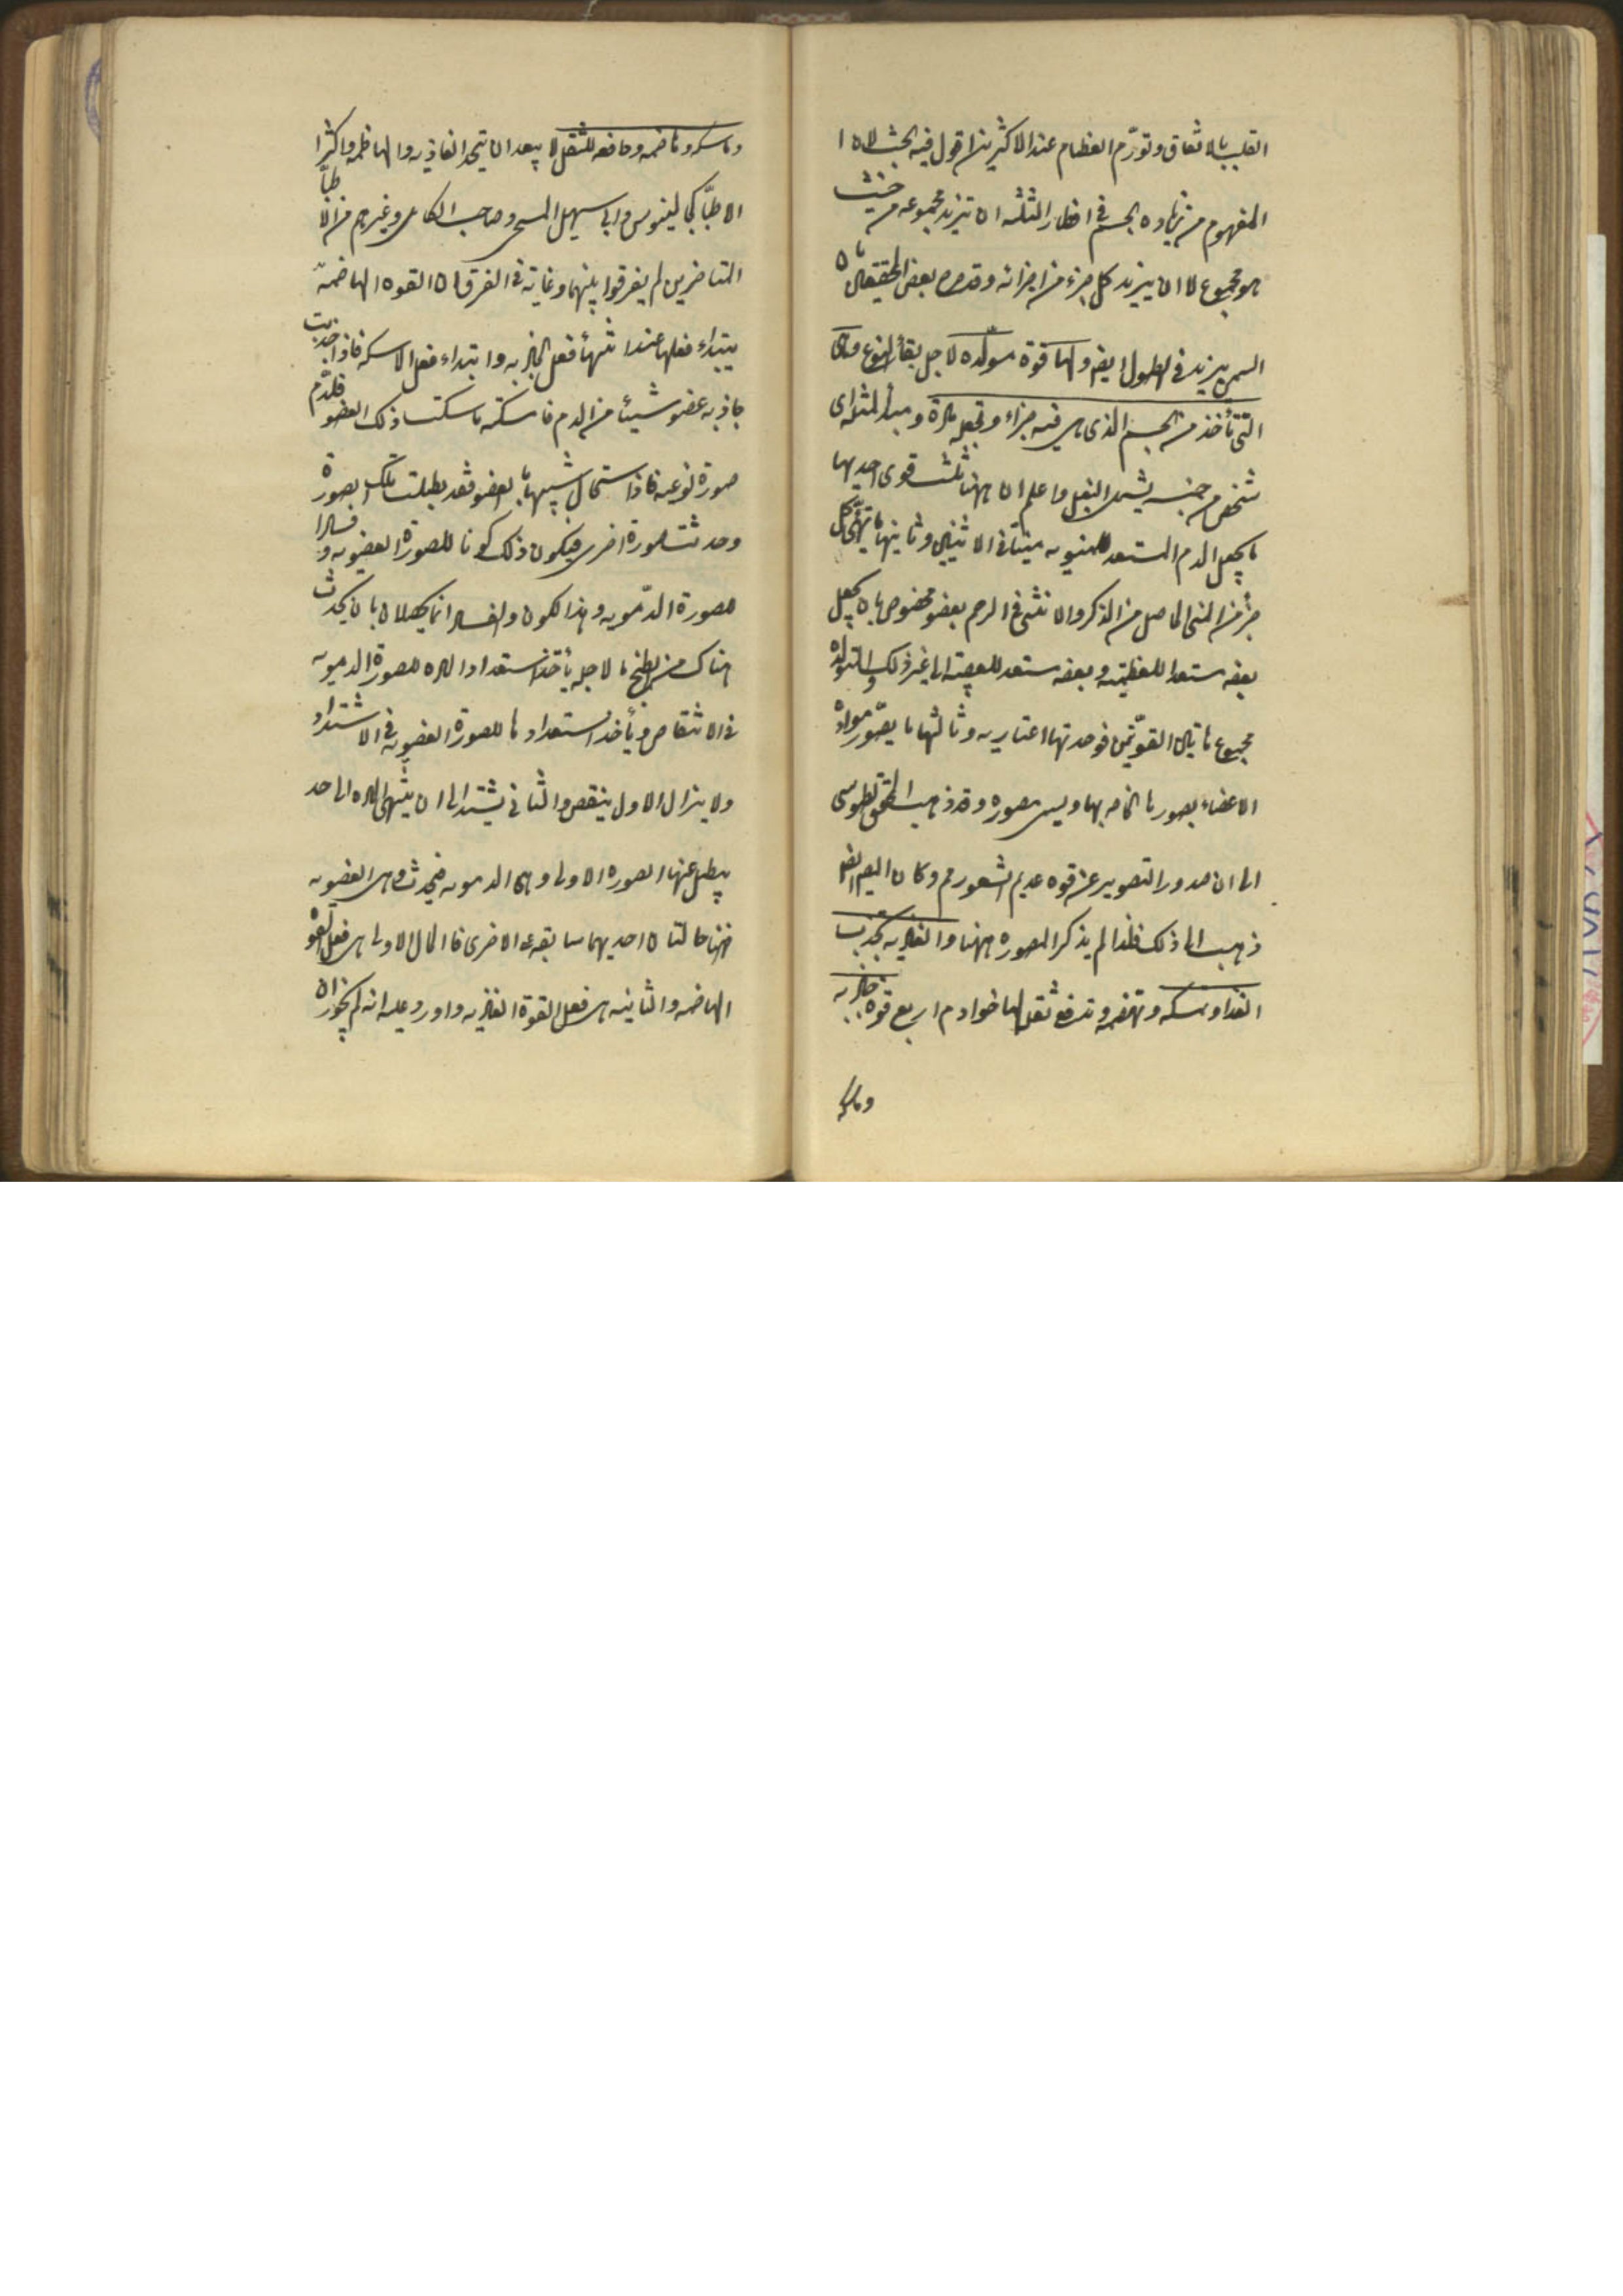 القلب بالاتفاق وتورّم العظام عند الاكثرين اقول فيه بحث لان ا
المفهوم من زياده الجسم فى اقطار الثلثه ان تزيد مجموعه من حيث
هو مجموع لا ان يزيد كل جزء من اجزائه وقد صرح بعض المحققين بان
السمن يزيد فى الطول ايضا ولها قوة مولده لاجل بقاء النوع وهى
التى تأخذ من الجسم الذى هى فيه جزاء وتجعله مادة ومبدأ لمثله اى
شخص من جنسه يشمل البغل واعلم ان ههنا ثلث قوى احديها
ما يجعل الدم المستعد للمنويه منيا فى الانثيين وثانيها ما يهيّئ كل
جزء من المنى الحاصل من الذكر والانثى فى الرحم بعضو مخصوص بان يجعل
بعضه مستعدا للعظميه وبعضه مستعد للعصبيه الى غير ذلك والمولده
مجموع هاتين القوّتين فوحدتها اعتباريه وثالثها ما يصوّر مواد
الاعضاء بصورها الخاصه بها ويسمى مصوره وقد ذهب المحقق الطوسى
الى ان صدور التصوير عن قوه عديم الشعور مم وكان المصـ ايضا
ذهب الى ذلك فلذا لم يذكر المصوره ههنا والغاذيه تجذب
الغذا وتمسكه وتهضمه وتدفع ثقله لها خوادم اربع قوه جاذبه
وماسكه
وماسكه وهاضمه ودافعه للثقل لا يبعد ان يتحد الغاذيه والهاضمه واكثر ا
الاطبّا كجالينوس وابى سهيل المسيحى وصاحب الكامل وغيرهم من الاطبّا
المتاخرين لم يفرقوا بينهما وغايه فى الفرق ان القوه الهاضمه
يبتداء فعلها عند انتهاء فعل الجاذبه وابتداء فعل الماسكه فاذا جذبت
جاذبه عضو شيئا من الدم فامسكته ماسكته ذلك العضو فللدم
صورة نوعيه فاذا استحال شبيها بالعضو فقد بطلت تلك الصورة
وحدثت صورة اخرى فيكون ذلك كونا للصورة العضويه وفسادا
للصورة الدّمويه وهذا الكون والفساد انما يحصلان بان يحدث
هناك من الطبخ ما لاجله يأخذ استعداد الماده للصورة الدمويه
فى الانتقاص ويأخذ استعدادها للصورة العضويه فى الاشتداد
ولا يزال الاول ينقص والثانى يشتد الى ان ينتهى الماده الى حد
يبطل عنها الصوره الاولى وهى الدمويه فيحدث وهى العضويه
فهنا حالتان احديهما سابقه على الاخرى فالحال الاولى هى فعل القوه
الهاضمه والثانيه هى فعل القوة الغاذيه واورد عليه انه لم يجوز ان